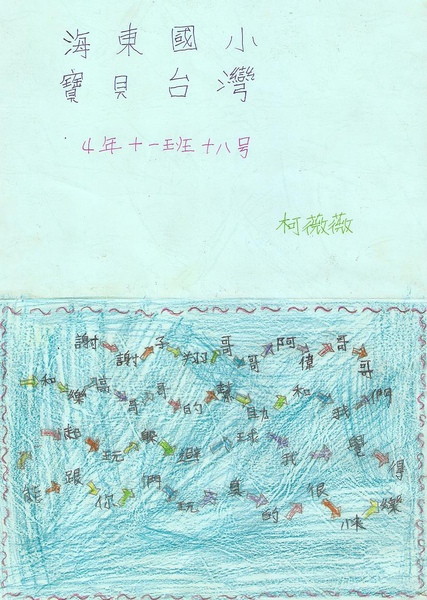 海東國小
寶貝台灣
4年十一班十八号
柯薇薇
謝謝子翔哥哥阿偉哥哥
和樂高哥哥的幫助和我們
起玩躲避球我覺得
能跟你們玩真的很快樂